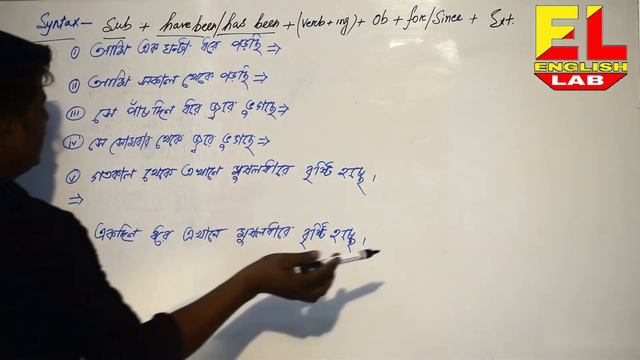 Syntax— Sub + have been/has been + (verb+ing) + Ob + for/Since + Ext.
EL
ENGLISH
LAB
(i) আমি এক ঘন্টা ধরে পড়ছি ⇒
(ii) আমি সকাল থেকে পড়ছি ⇒
(iii) সে পাঁচদিন ধরে জ্বরে ভুগছে ⇒
(iv) সে সোমবার থেকে জ্বরে ভুগছে ⇒
(v) গতকাল থেকে এখানে মুষলধারে বৃষ্টি হচ্ছে।
⇒
একদিন ধরে এখানে মুষলধারে বৃষ্টি হচ্ছে।